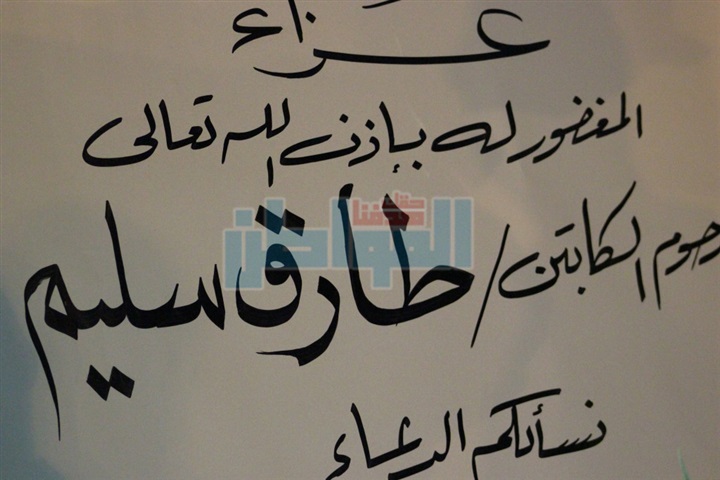 عزاء
المغفور له بإذن الله تعالى
حقنا كلنا
المواطن
رحوم الكابتن / طارق سليم
نسألكم الدعاء